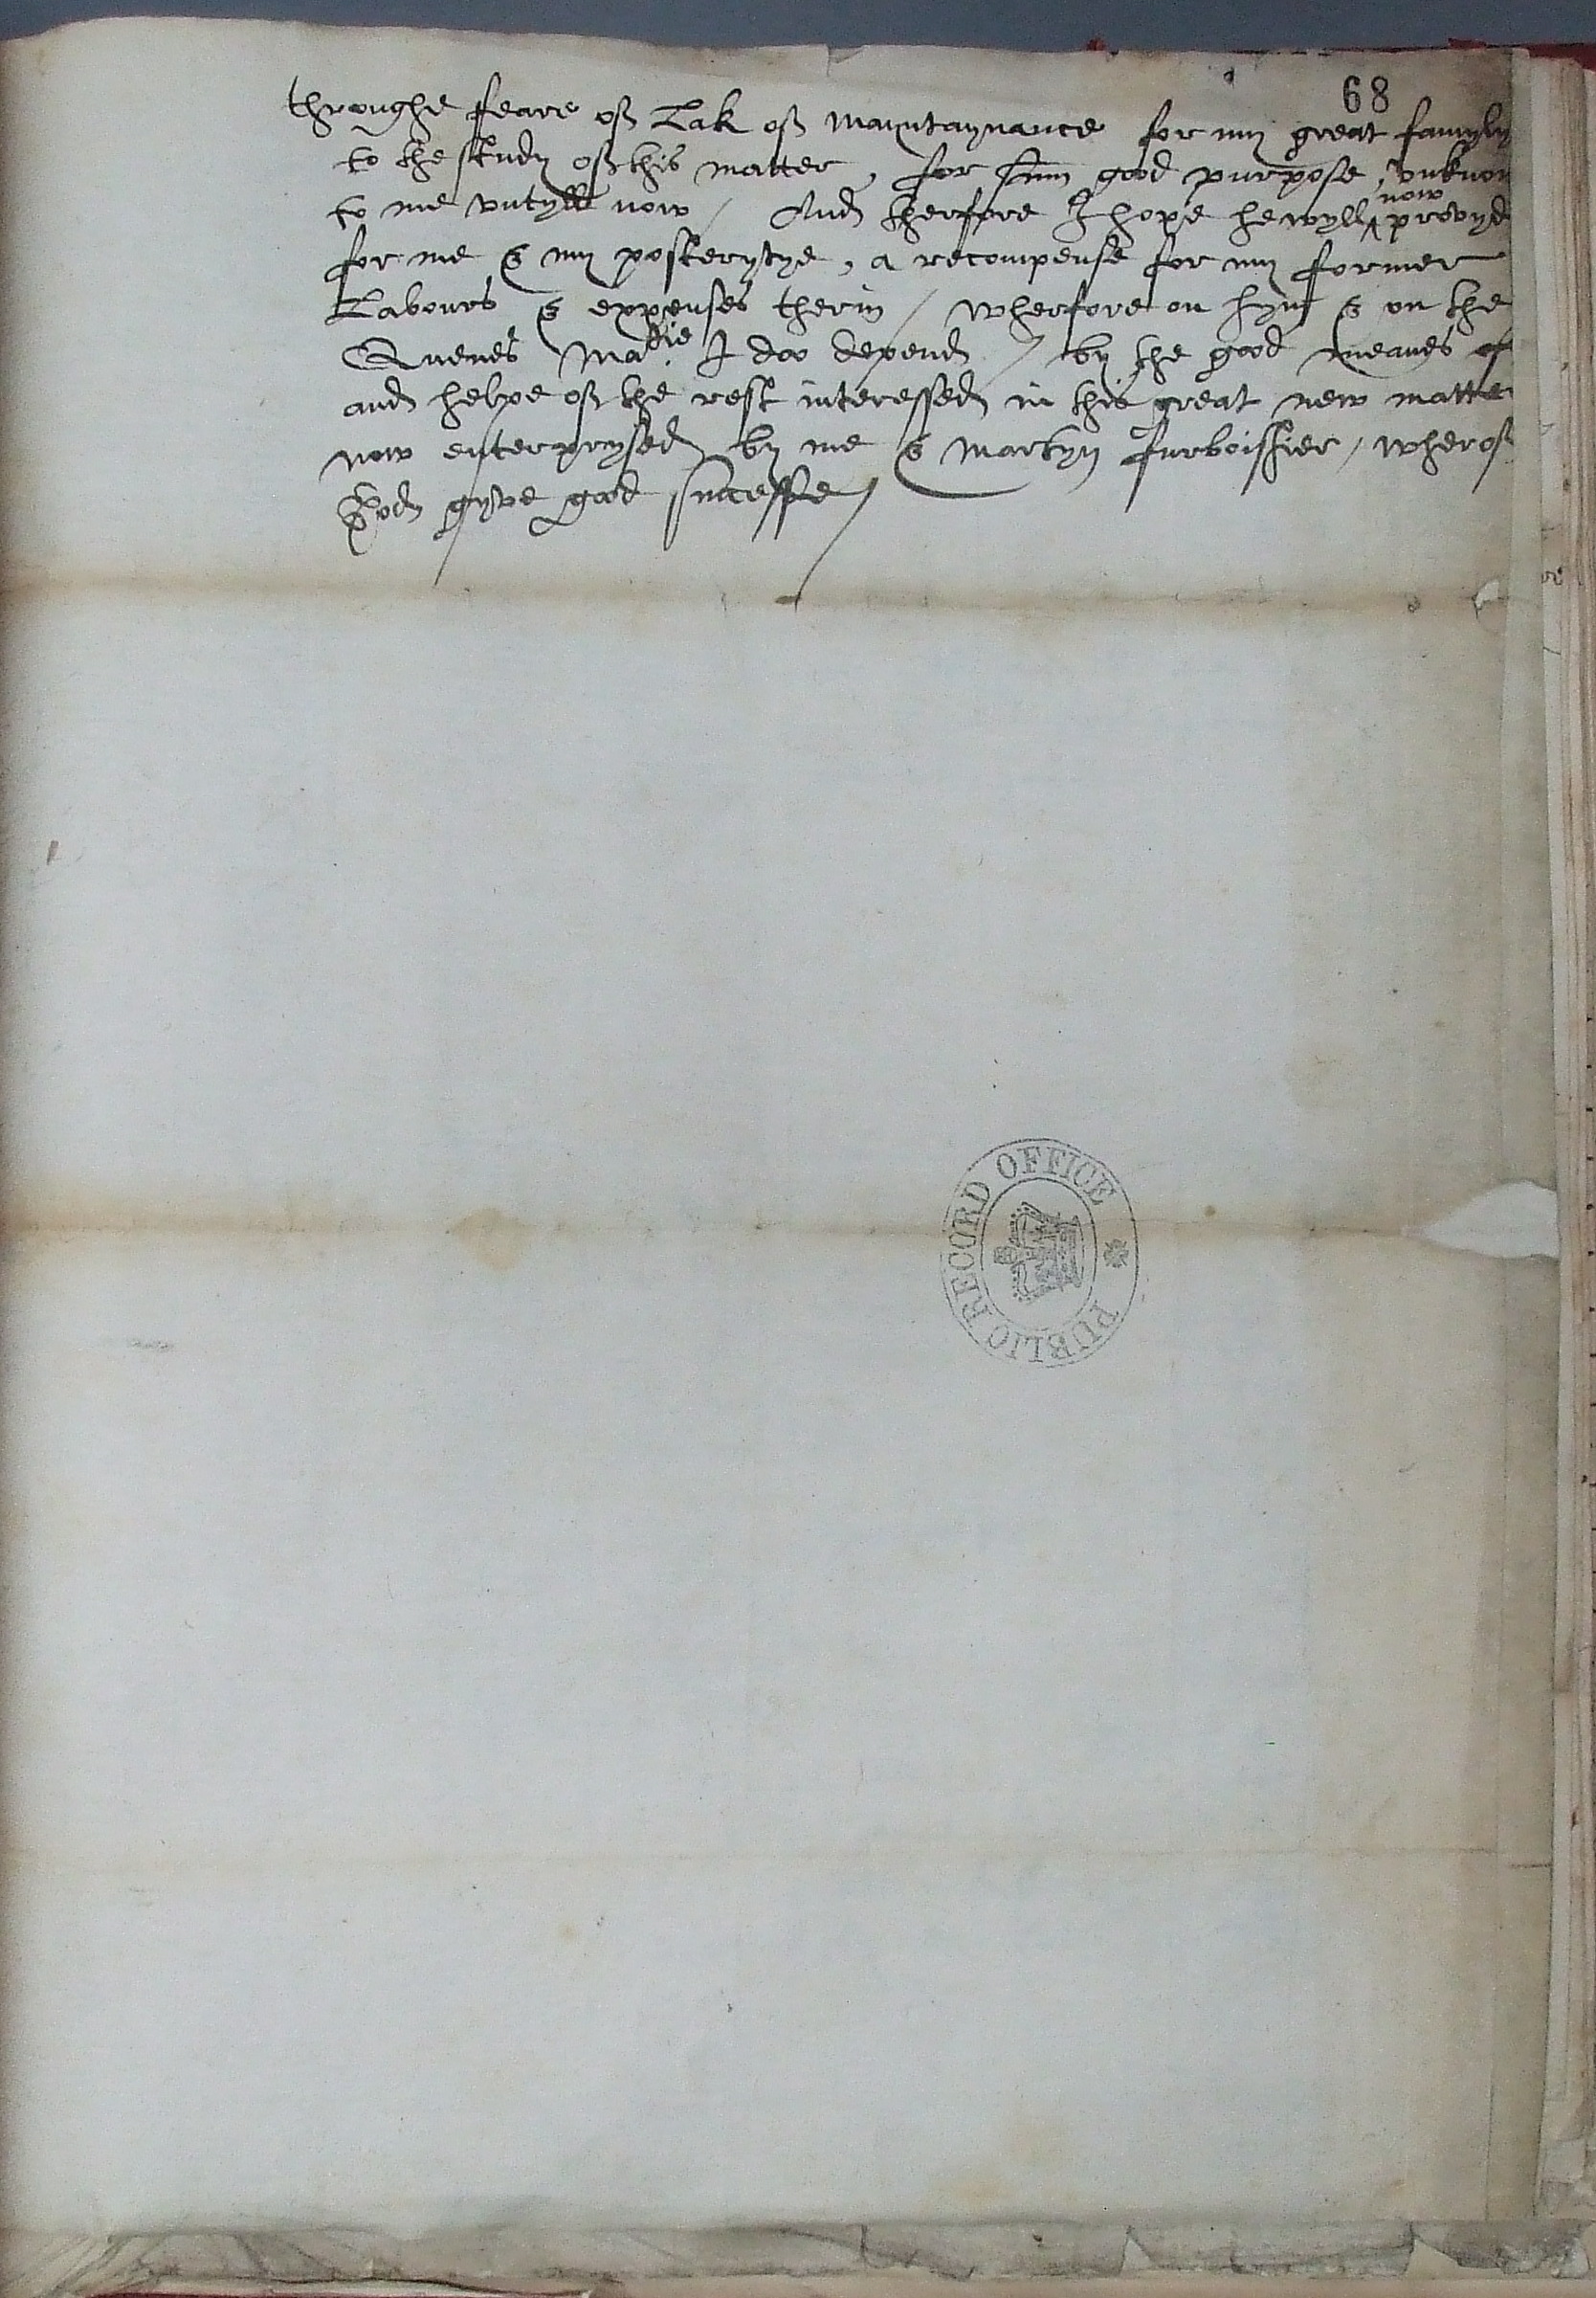 68
throughe feare of Lak of mayntaynance for my great famyly
to the study of this matter, for sum good purpose, unknow
now
to me untyll now / And therfore I hope he wyll ^ provyd
for me & my posterytye, a recompense for my former
Labours & expenses therin / wherfore on hym & on the
Quenes Matie I doo depend / by the good meanes of
and helpe of the rest interessed in this great new matter
now enterprysed by me & Martyn furboissher / wherof
God gyve good successe /
PUBLIC RECORD OFFICE